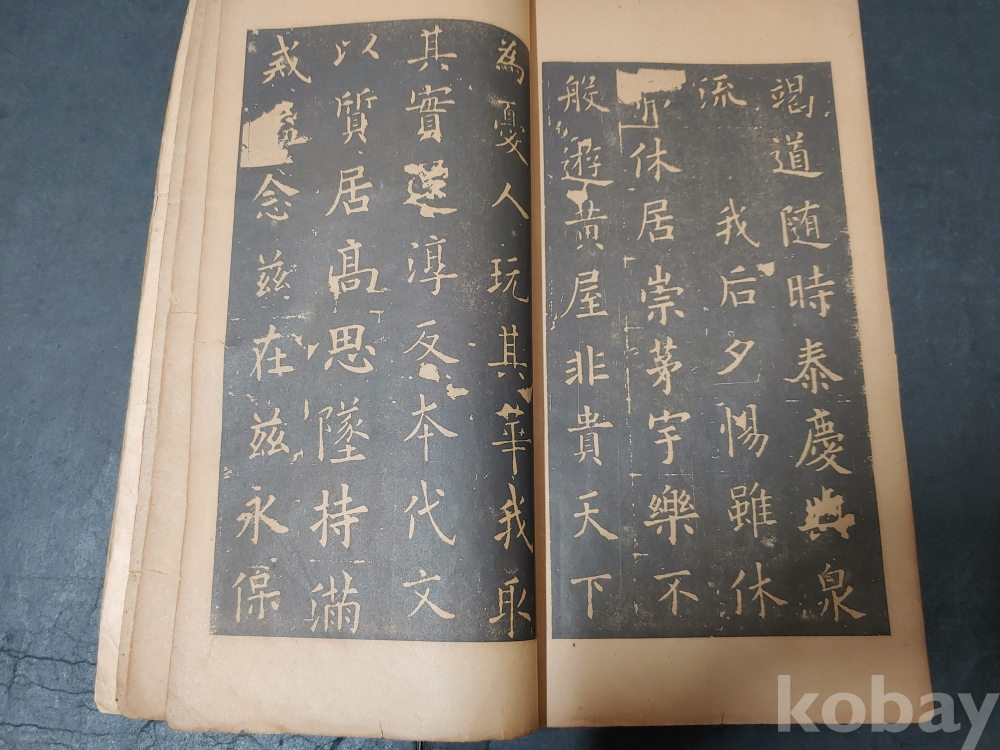 竭道随時泰慶與泉
流我后夕惕雖休
休居崇茅宇樂不
般遊黃屋非貴天下
為憂人玩其華我取
其實還淳反本代文
以質居高思墜持滿
戒念兹在兹永保
kobay